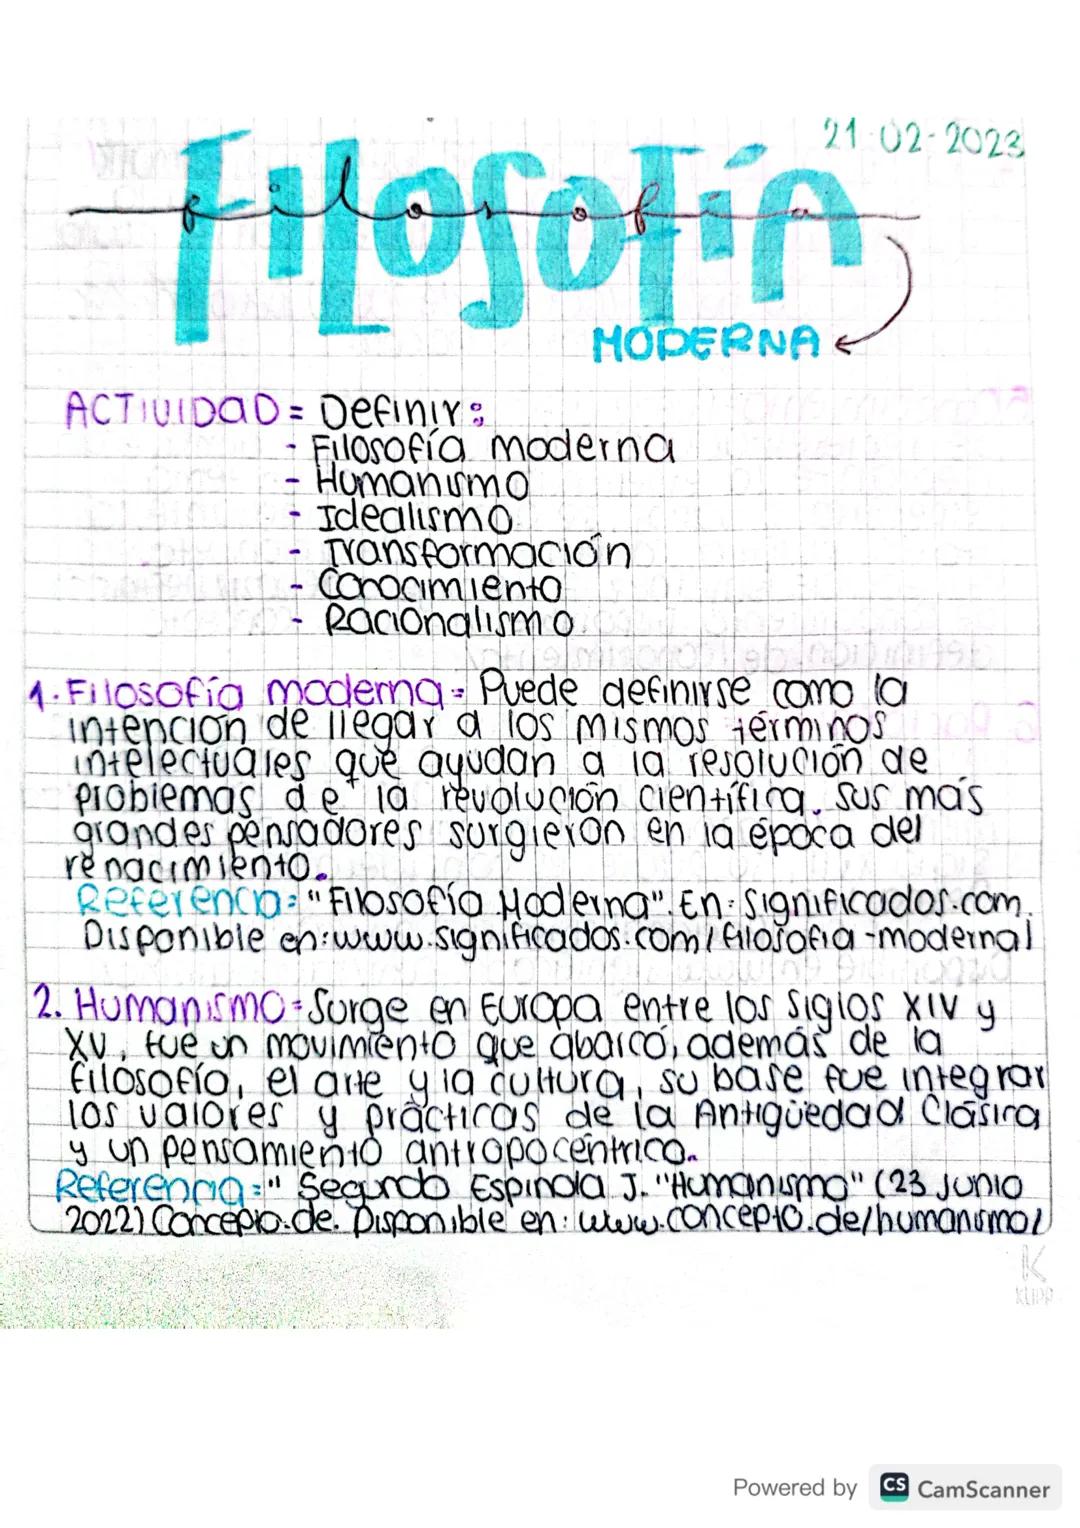 21-02-2023
Filosofía
filosofia
MODERNA
ACTIVIDAD = Definir:
- Filosofía moderna
- Humanismo
- Idealismo
- Transformación
- Conocimiento
- Racionalismo.
1. Filosofía moderna = Puede definirse como la
intención de llegar a los mismos términos
intelectuales que ayudan a la resolución de
problemas de la revolución científica. Sus más
grandes pensadores surgieron en la época del
renacimiento.
Referencia = "Filosofía Moderna". En: Significados.com.
Disponible en: www.significados.com/filosofia-moderna/
2. Humanismo = Surge en Europa entre los Siglos XIV y
XV, fue un movimiento que abarcó, además de la
filosofía, el arte y la cultura, su base fue integrar
los valores y prácticas de la Antigüedad Clásica
y un pensamiento antropocéntrico.
Referencia = " Segundo Espinola J. "Humanismo" (23 Junio
2022) Concepto.de. Disponible en: www.concepto.de/humanismo/
K
KLIPP
Powered by CS CamScanner